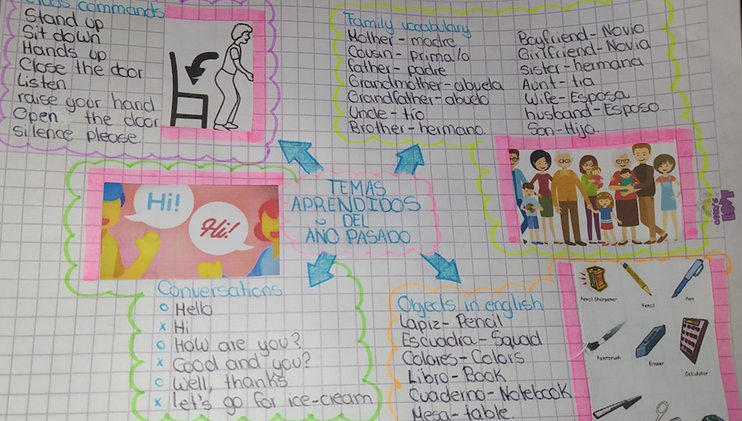 Class commands
Stand up
Sit down
Hands up
Close the door
Listen
raise your hand
Open the door
silence please.
Family vocabulary
Mother - madre
Cousin - primo/a
Father - padre
Grandmother - abuela
Grandfather - abuelo
Uncle - tío
Brother - hermano
Boyfriend - Novio
Girlfriend - Novia
sister - hermana
Aunt - tia
Wife - Esposa
husband - Esposo
Son - Hijo.
TEMAS
APRENDIDOS
DEL
AÑO PASADO
Hi!
Hi!
Conversations
o Hello
x Hi
o How are you?
x Good and you?
o Well, thanks
x let's go for ice-cream
Objects in english
Lapiz - Pencil
Escuadra - Squad
Colores - Colors
Libro - Book
Cuaderno - Notebook
Mesa - table.
Pencil Sharpener
Pencil
Pen
Paintbrush
Eraser
Calculator